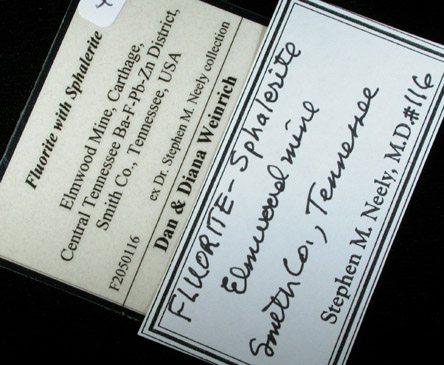 Fluorite with Sphalerite
Elmwood Mine, Carthage,
Central Tennessee Ba-F-Pb-Zn District,
Smith Co., Tennessee, USA
F2050116
ex Dr. Stephen M. Neely collection
Dan & Diana Weinrich
FLUORITE-Sphalerite
Elmwood mine
Smith Co., Tennessee
Stephen M. Neely, M.D.#116